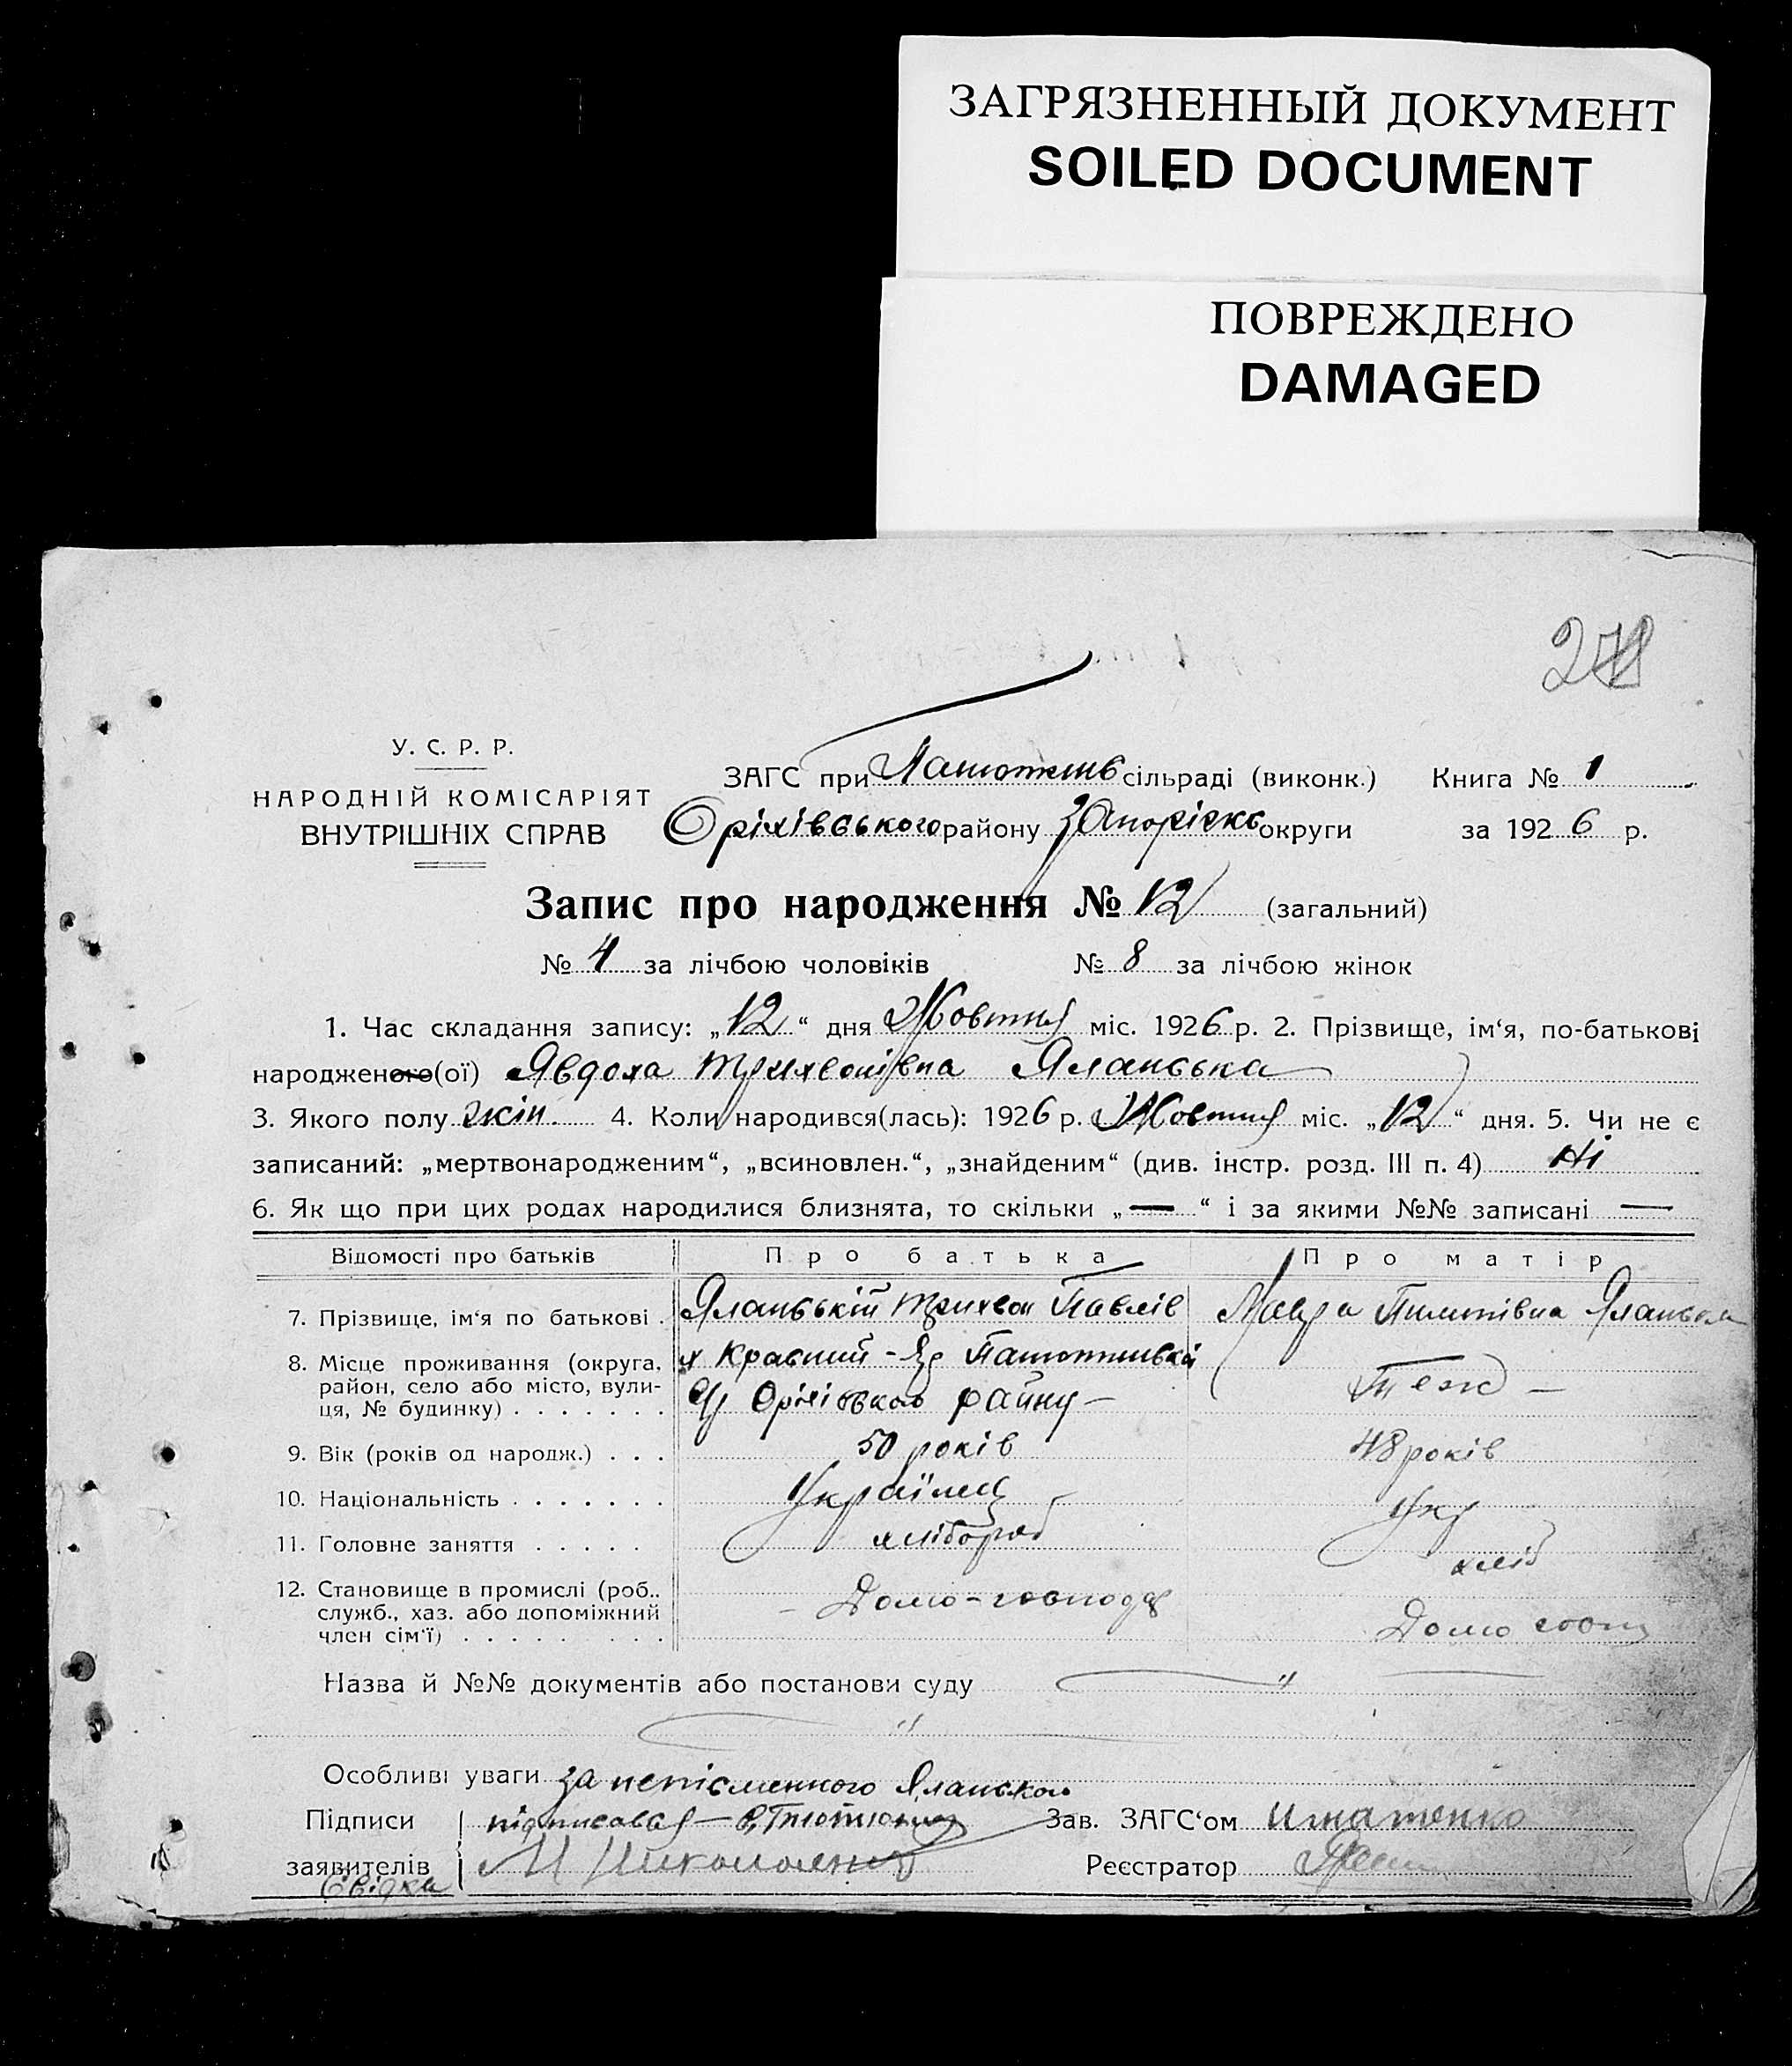 ЗАГРЯЗНЕННЫЙ ДОКУМЕНТ
SOILED DOCUMENT
ПОВРЕЖДЕНО
DAMAGED
У. С. Р. Р.
НАРОДНІЙ КОМІСАРІЯТ
ВНУТРІШНІХ СПРАВ
ЗАГС при сільраді (виконк.) Книга № 1
Оріхівського району Запорізьк округи за 1926 р.
Запис про народження № 12 (загальний)
№ 4 за лічбою чоловіків № 8 за лічбою жінок
1. Час складання запису: „12“ дня Жовтня міс. 1926 р. 2. Прізвище, ім‘я, по-батькові
народженого(ої) Явдоха Трихвонівна Яланська
3. Якого полу жін. 4. Коли народився(лась): 1926 р. Жовтня міс. „12“ дня. 5. Чи не є
записаний: „мертвонародженим“, „всиновлен.“, „знайденим“ (див. інстр. розд. III п. 4) Ні
6. Як що при цих родах народилися близнята, то скільки „—“ і за якими №№ записані —
Відомості про батьків Про батька Про матір
7. Прізвище, ім‘я по батькові . Яланській Трихвон Павлів Мавра Пилипівна Яланська
8. Місце проживання (округа, район, село або місто, вулиця, № будинку) . . . . . . .
х Красний - Яр
Оріхівськ району — Теж —
9. Вік (років од народж.) . . . 50 років 48 років
10. Національність . . . . . . . Українец Укр
11. Головне заняття . . . . . хлібороб хліб
12. Становище в промислі (роб.,
служб., хаз. або допоміжний
член сім‘ї) . . . . . . . . Домо-господар Домо госп
Назва й №№ документів або постанови суду — " —
"
Особливі уваги за непісменного Яланськ
Підписи підписався — Тютюн Зав. ЗАГС‘ом Игнатенко
заявителів М Николаенко Реєстратор
Свідки